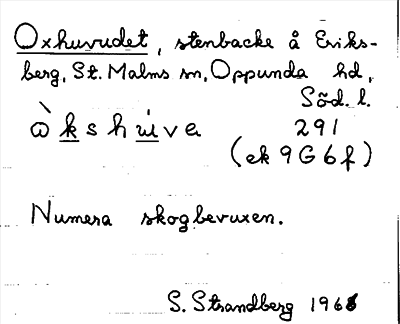 Oxhuvudet, stenbacke å Eriks-
berg, St. Malms sn, Oppunda hd,
Söd. l.
ò̀ k s h u̇ v a 291
(ek 9 G 6 f)
Numera skogbevuxen.
S. Strandberg 1968